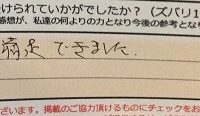 けられていかがでしたか？（ズバリ1
感想が、私達の何よりの力となり今後の参考とな
満足できました.
ざいます。掲載のご協力頂けるものにチェックをお